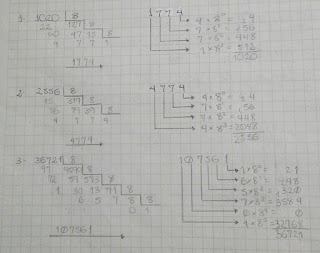 1. 1020 8
22 127 8
60 47 15 8
4 7 7 1
1774
1774
4 × 8⁰ = 4
7 × 8¹ = 56
7 × 8² = 448
1 × 8³ = 512
1020
2. 2556 8
15 319 8
76 79 39 8
4 7 7 4
4774
4774
4 × 8⁰ = 4
7 × 8¹ = 56
7 × 8² = 448
4 × 8³ = 2048
2556
3. 36721 8
47 4590 8
72 59 573 8
1 30 13 71 8
6 5 7 8 8
0 1
107561
107561
1 × 8⁰ =
6 × 8¹ = 48
5 × 8² = 320
7 × 8³ = 3584
0 × 8⁴ = 0
32768
36721